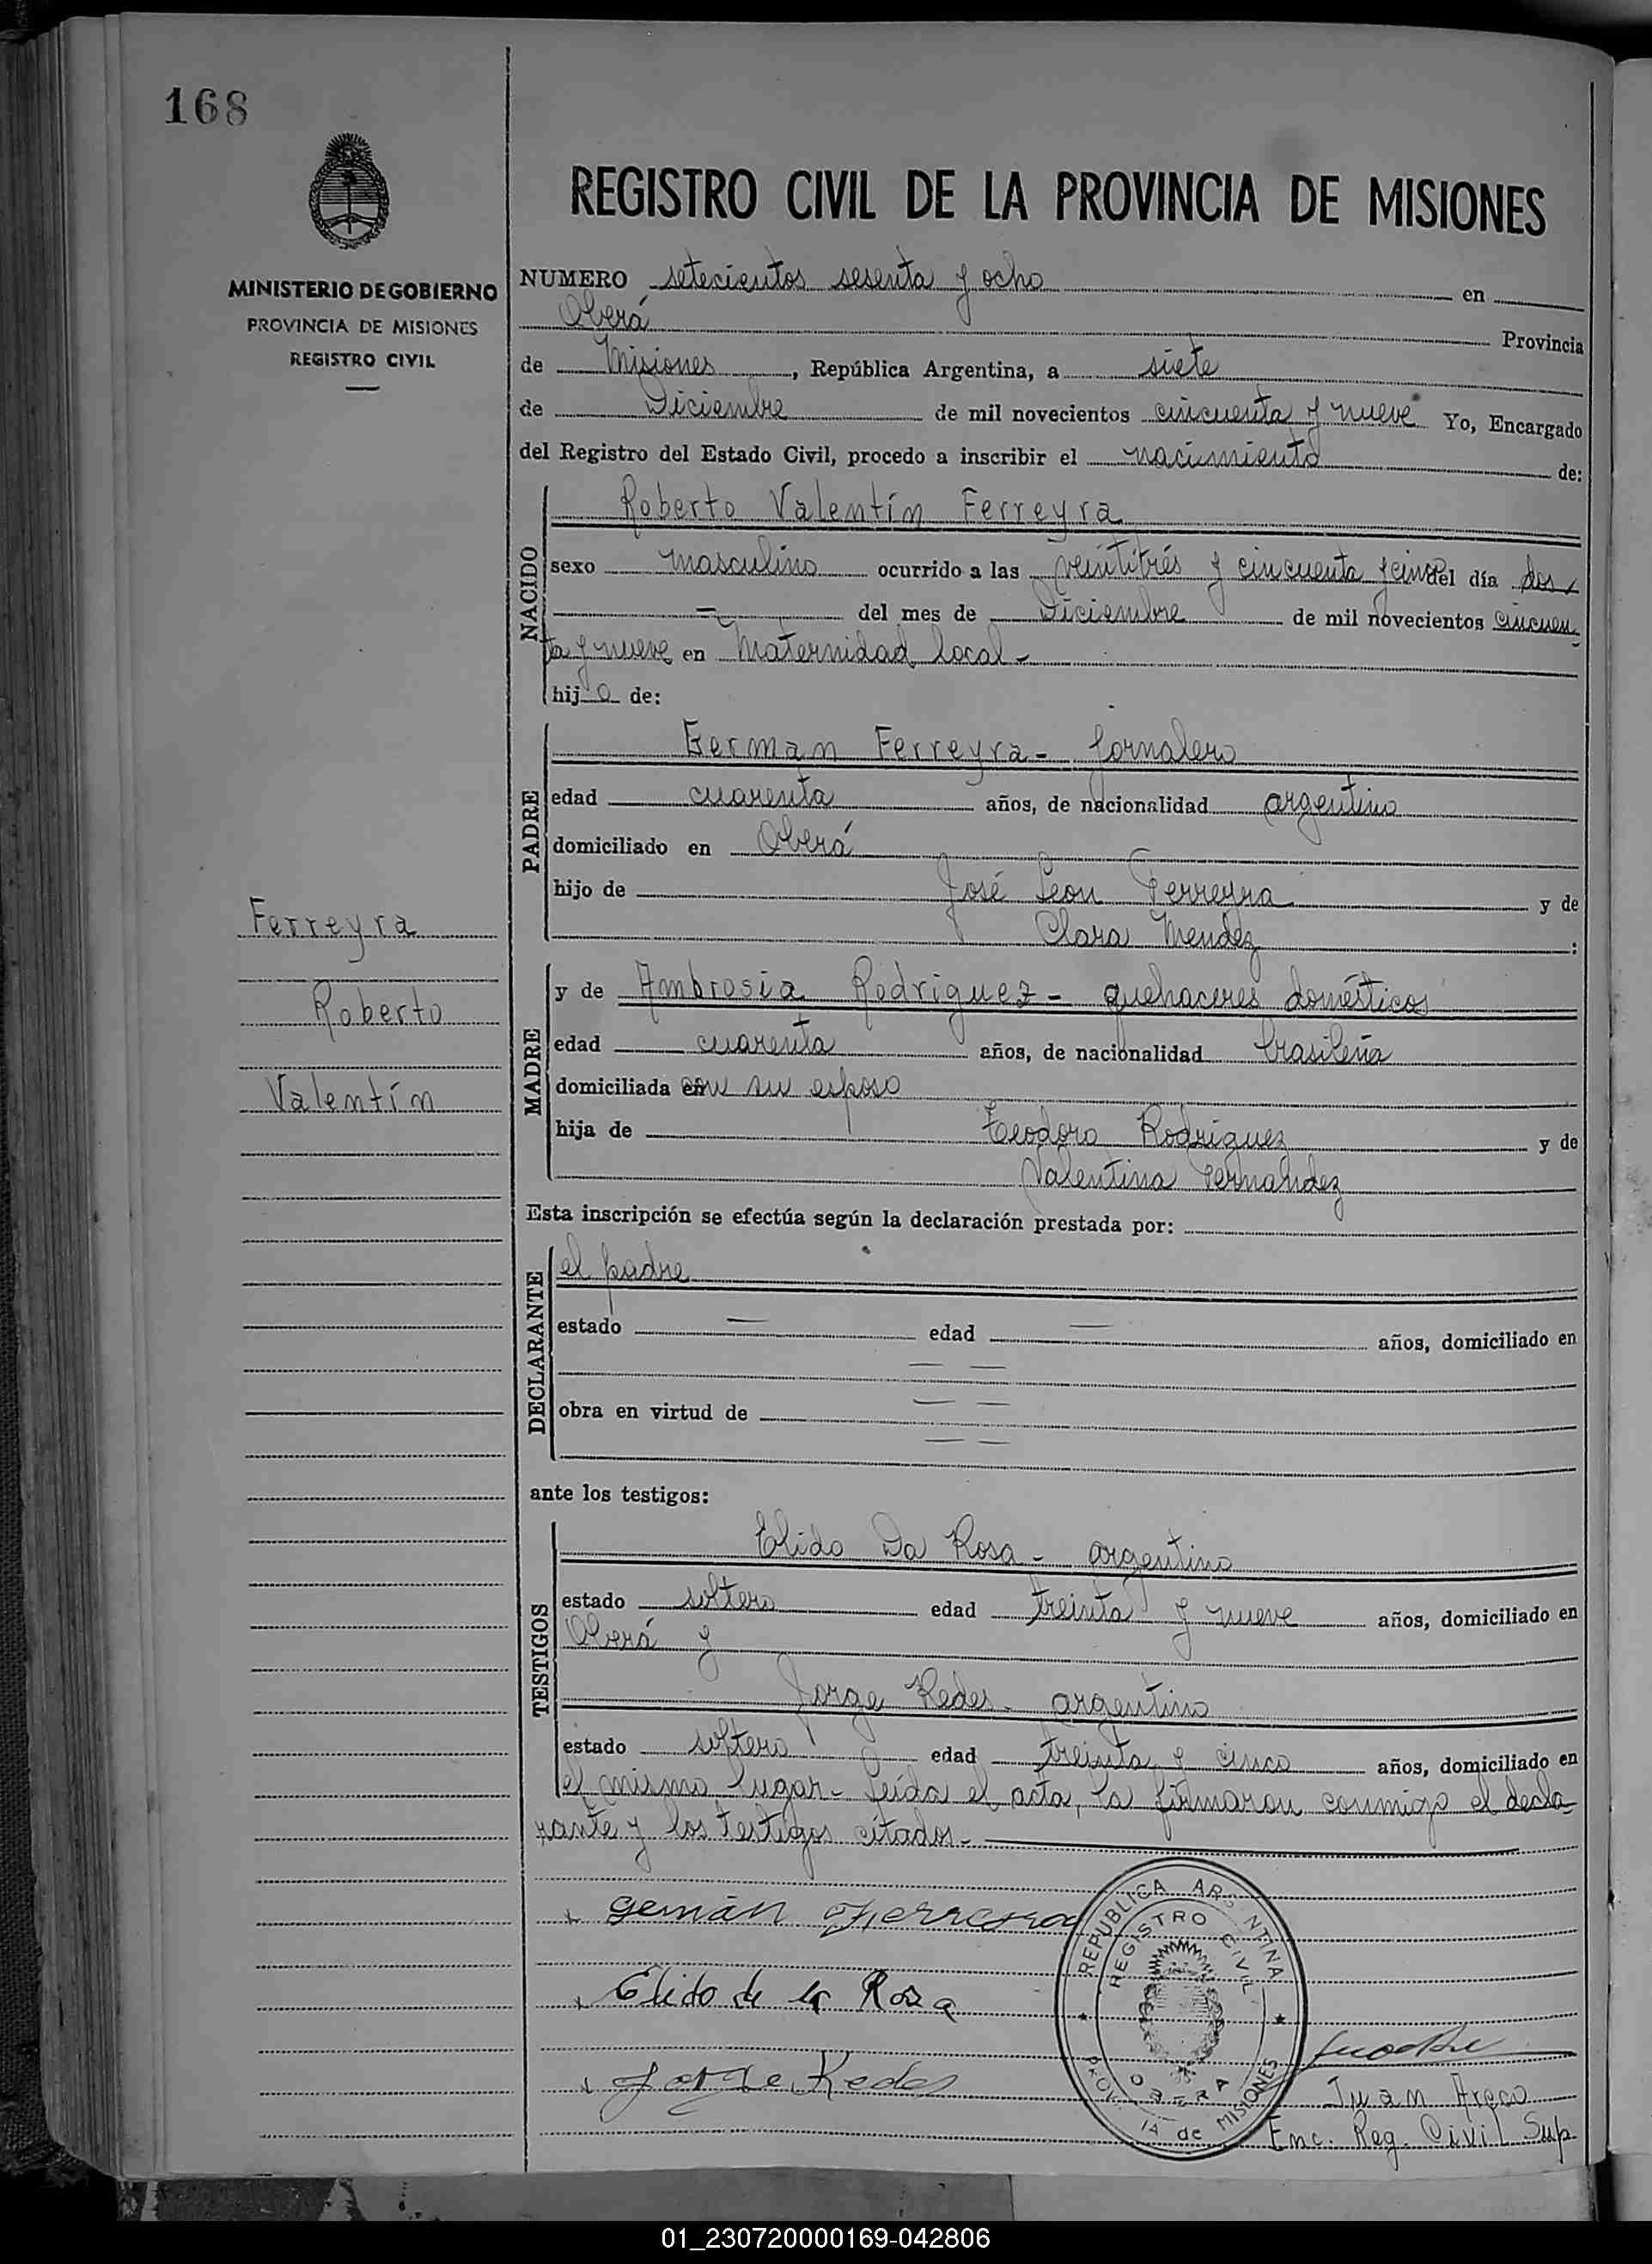 168
MINISTERIO DE GOBIERNO
PROVINCIA DE MISIONES
REGISTRO CIVIL
REGISTRO CIVIL DE LA PROVINCIA DE MISIONES
NUMERO setecientos sesenta y ocho en
Oberá Provincia
de Misiones, República Argentina, a siete
de Diciembre de mil novecientos cincuenta y nueve Yo, Encargado
del Registro del Estado Civil, procedo a inscribir el nacimiento de:
NACIDO
Roberto Valentín Ferreyra
sexo masculino ocurrido a las veintitrés y cincuenta y cinco del día dos
del mes de Diciembre de mil novecientos cincuen
ta y nueve en Maternidad local-
hijo de:
PADRE
German Ferreyra - Jornalero
edad cuarenta años, de nacionalidad argentino
domiciliado en Oberá
hijo de José Leon Ferreyra y de
Clara Mendez :
Ferreyra
Roberto
Valentín
MADRE
y de Ambrosia Rodriguez - quehaceres domésticos
edad cuarenta años, de nacionalidad brasileña
domiciliada con su esposo
hija de Teodoro Rodriguez y de
Valentina Fernandez
Esta inscripción se efectúa según la declaración prestada por:
DECLARANTE
el padre
estado — edad — años, domiciliado en
— —
obra en virtud de — —
— —
ante los testigos:
TESTIGOS
Elido Da Rosa - argentino
estado soltero edad treinta y nueve años, domiciliado en
Oberá y
Jorge Kedes - argentino
estado soltero edad treinta y cinco años, domiciliado en
el mismo lugar - Leída el acta, la firmaron conmigo el decla
rante y los testigos citados.-
German Ferreyra
Elido de la Rosa
Jorge Kedes
REPUBLICA ARGENTINA
REGISTRO CIVIL
OBERA
PROV. de MISIONES
Juan Areco
Enc. Reg. Civil Sup.
01_230720000169-042806